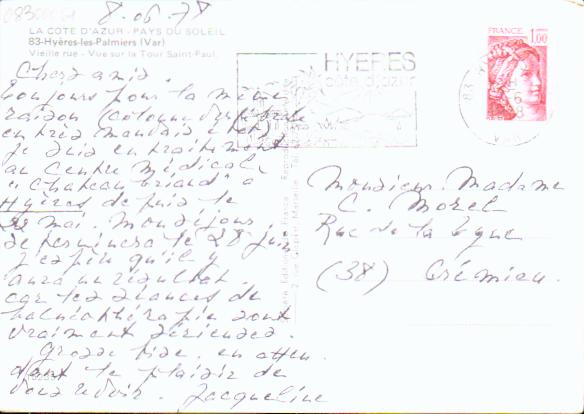 8-06-78
LA COTE D'AZUR - PAYS DU SOLEIL
83-Hyères-les-Palmiers (Var)
Vieille rue - Vue sur la Tour Saint-Paul.
Chers amis.
Toujours pour la même
raison (colonne vertébrale
en très mauvais état)
je suis en traitement
au Centre Médical
"Chateaubriand" à
Hyères depuis le
mai. Mon séjour
se terminera le 28 juin
J'espère qu'il y
aura un résultat.
car les séances de
balnéothérapie sont
vraiment sérieuses.
Grosse bise. en atten
dant le plaisir de
vous revoir. Jacqueline
HYÈRES
côte d'azur
FRANCE
1,00
Monsieur. Madame
C. Morel
Rue de la
(38) Crémieu.